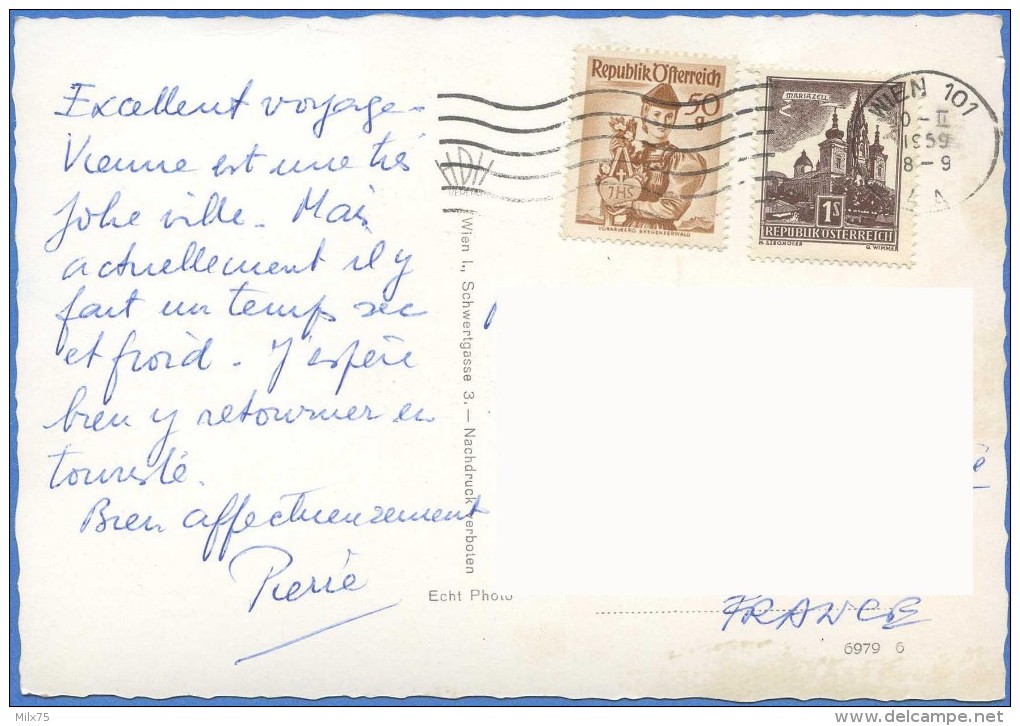 Excellent voyage -
Vienne est une très
jolie ville. Mais
actuellement il y
fait un temps sec
et froid - J'espère
bien y retourner en
touriste.
Bien affectueusement
Pierre
Wien I., Schwertgasse 3. — Nachdruck verboten
Echt Photo
Republik Österreich
50
g
JHS
VORARLBERG BREGENZERWALD
MARIAZELL
1S
REPUBLIK ÖSTERREICH
G. WIMMER
WIEN 101
-II
1959
8-9
A
FRANCE
6979 6
Milx75
www.delcampe.net